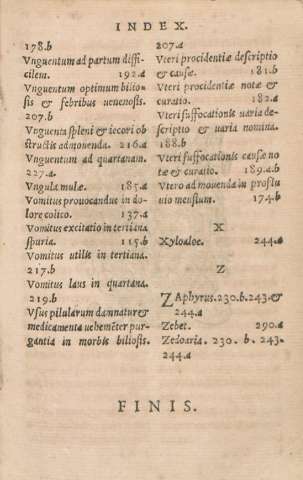 INDEX.
178.b
Vnguentum ad partum diffi-
cilem. 192.a
Vnguentum optimum bilio-
sis & febribus uenenosis.
207.b
Vnguenta spleni & iecori ob
structis admouenda. 216.a
Vnguentum ad quartanam.
227.a
Vngula mulæ. 185.a
Vomitus prouocandus in do-
lore colico. 137.a
Vomitus excitatio in tertiana
spuria. 115.b
Vomitus utilis in tertiana.
217.b
Vomitus laus in quartana.
219.b
Vsus pilularum damnatur &
medicamenta uehemēter pur-
gantia in morbis biliosis.
207.a
Vteri procidentiæ descriptio
& causæ. 181.b
Vteri procidentiæ notæ &
curatio. 182.a
Vteri suffocationis uaria de-
scriptio & uaria nomina.
188.b
Vteri suffocationis causæ no
tæ & curatio. 189.a.b
Vtero admouenda in proflu
uio mensium. 174.b
X
Xyloaloe. 244.a
Z
ZAphyrus. 230.b. 243.&
244.a
Zebet. 290.a
Zedoaria. 230. b. 243.
244.a
FINIS.